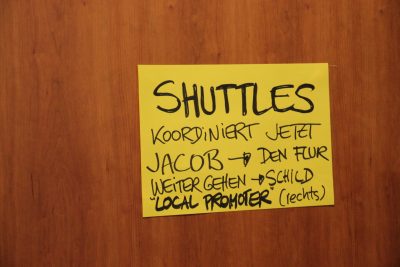 SHUTTLES
KOORDINIERT JETZT
JACOB → DEN FLUR
WEITER GEHEN → SCHILD
"LOCAL PROMOTER" (rechts)